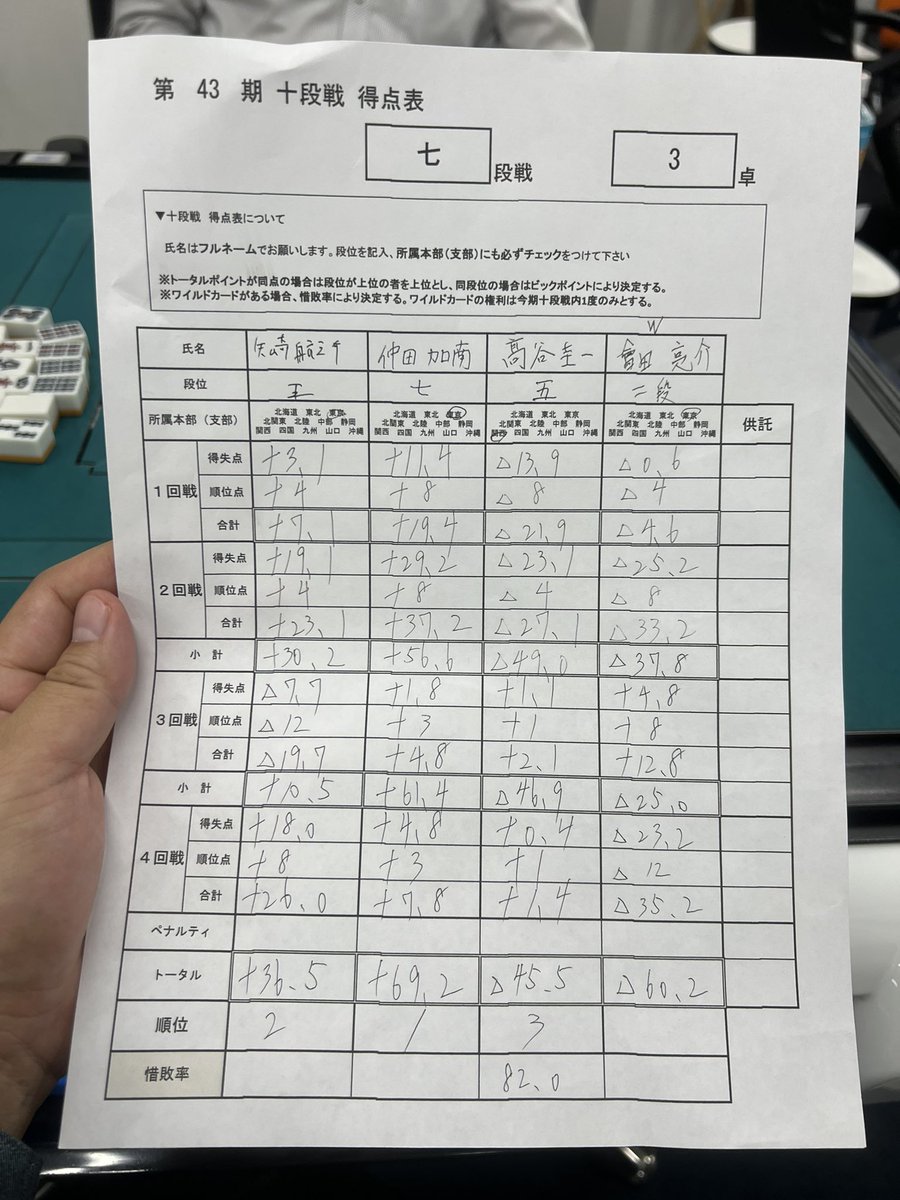 第 43 期 十段戦 得点表
七 段戦 3 卓
▼十段戦 得点表について
氏名はフルネームでお願いします。段位を記入、所属本部(支部)にも必ずチェックをつけて下さい
※トータルポイントが同点の場合は段位が上位の者を上位とし、同段位の場合はビックポイントにより決定する。
※ワイルドカードがある場合、惜敗率により決定する。ワイルドカードの権利は今期十段戦内1度のみとする。
W
氏名 仲田 加南 高谷圭一 會田 亮介
段位 五 七 五 二段
所属本部(支部) 北海道 東北 東京 北海道 東北 東京 北海道 東北 東京 北海道 東北 東京 供託
北関東 北陸 中部 静岡 北関東 北陸 中部 静岡 北関東 北陸 中部 静岡 北関東 北陸 中部 静岡
関西 四国 九州 山口 沖縄 関西 四国 九州 山口 沖縄 関西 四国 九州 山口 沖縄 関西 四国 九州 山口 沖縄
1回戦 得失点 +3.1 +11.4 △13.9 △0.6
順位点 +4 +8 △8 △4
合計 +7.1 +19.4 △21.9 △4.6
2回戦 得失点 +19.1 +29.2 △23.1 △25.2
順位点 +4 +8 △4 △8
合計 +23.1 +37.2 △27.1 △33.2
小 計 +30.2 +56.6 △49.0 △37.8
3回戦 得失点 △7.7 +1.8 +1.1 +4.8
順位点 △12 +3 +1 +8
合計 △19.7 +4.8 +2.1 +12.8
小 計 +10.5 +61.4 △46.9 △25.0
4回戦 得失点 +18.0 +4.8 +0.4 △23.2
順位点 +8 +3 +1 △12
合計 +26.0 +7.8 +1.4 △35.2
ペナルティ
トータル +36.5 +69.2 △45.5 △60.2
順位 2 1 3
惜敗率 82.0